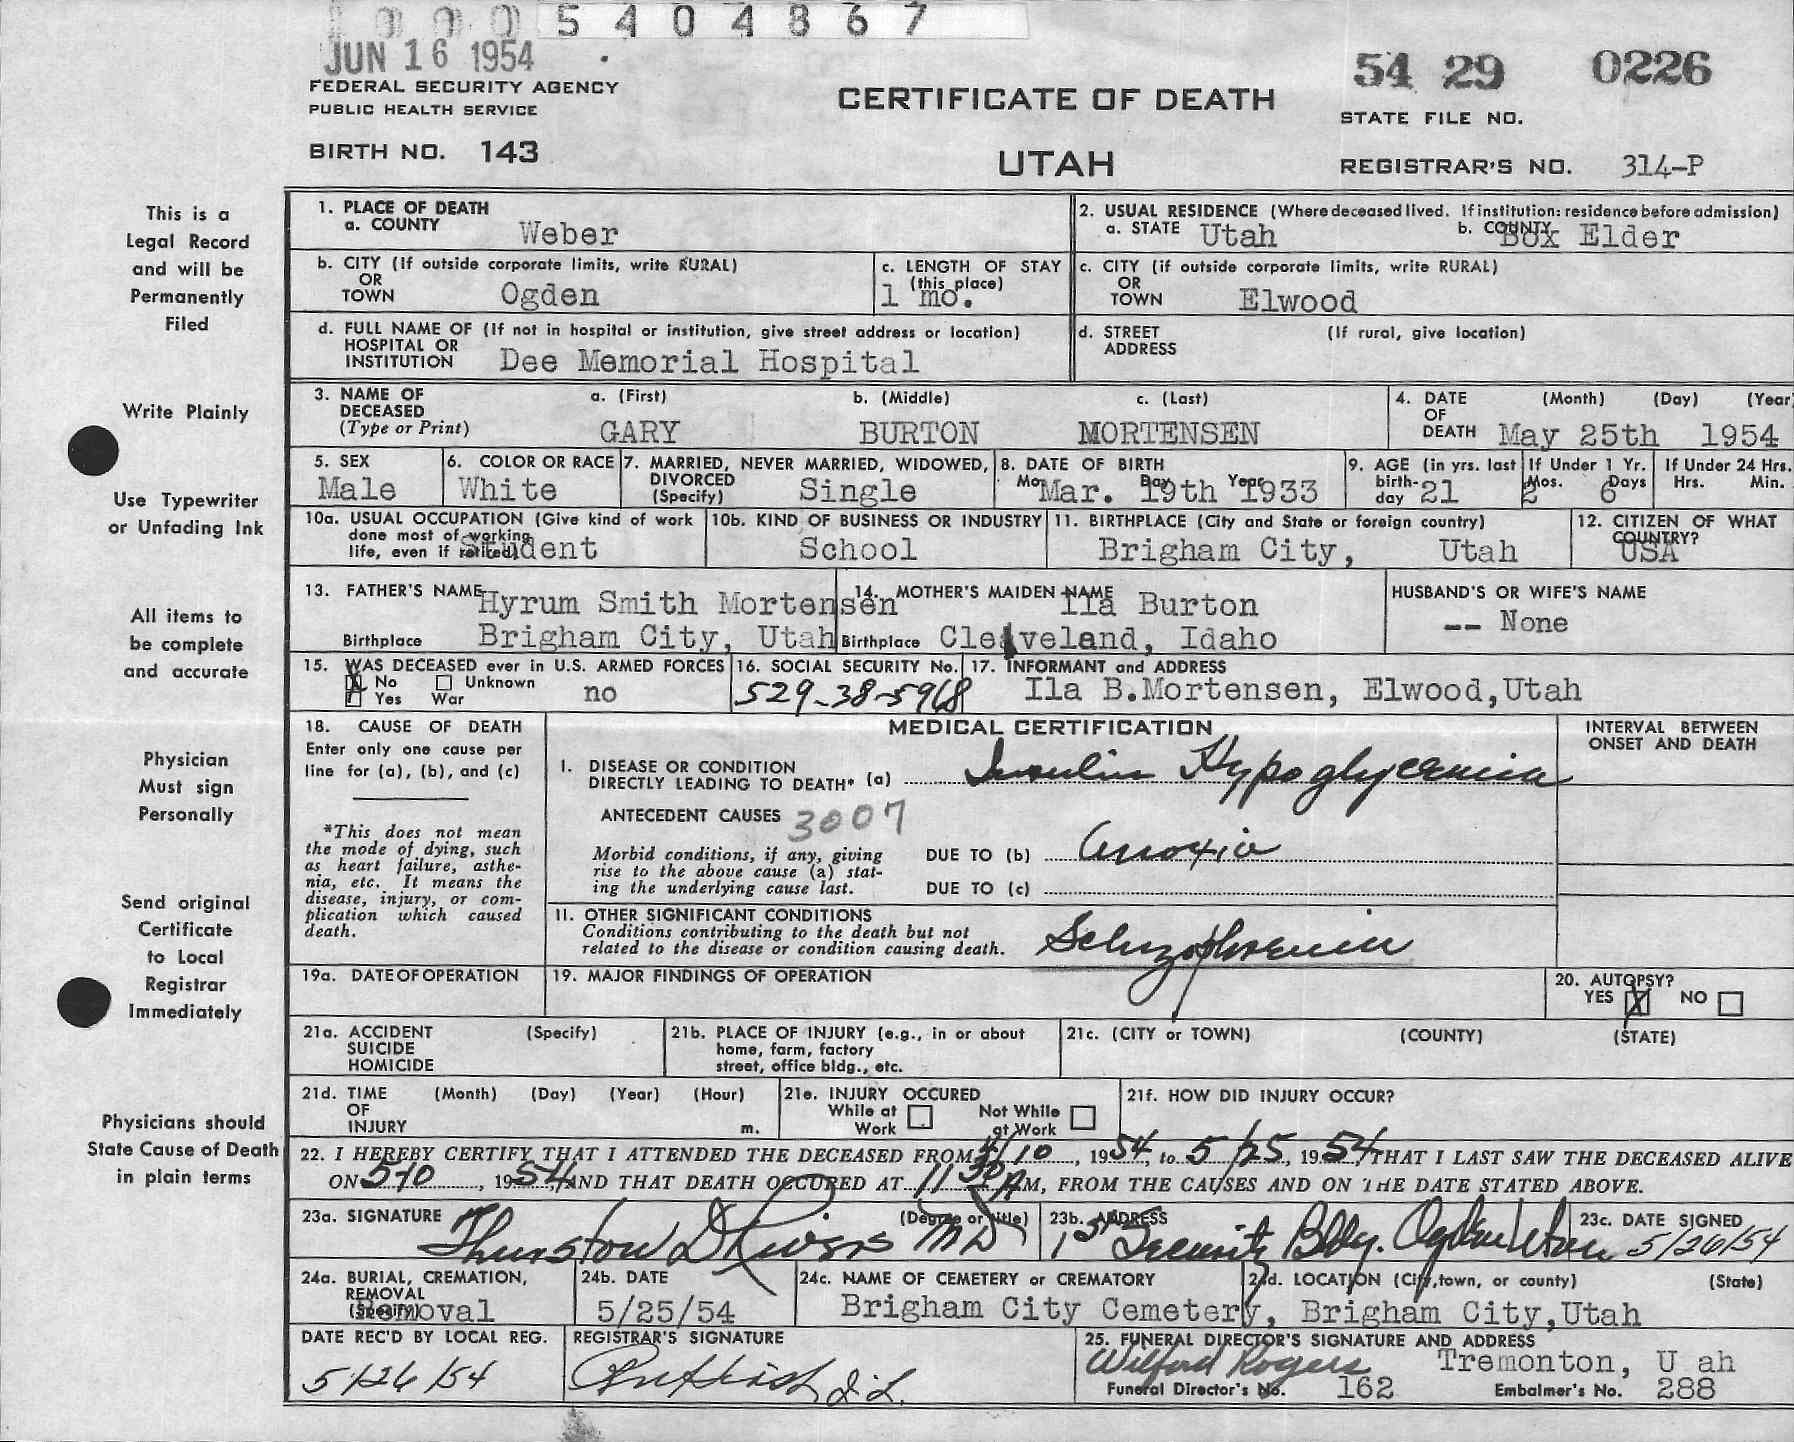 1000 5404867
JUN 16 1954
54 29 0226
FEDERAL SECURITY AGENCY
PUBLIC HEALTH SERVICE
CERTIFICATE OF DEATH
STATE FILE NO.
BIRTH NO. 143
UTAH
REGISTRAR'S NO. 314-P
This is a
Legal Record
and will be
Permanently
Filed
Write Plainly
Use Typewriter
or Unfading Ink
All items to
be complete
and accurate
Physician
Must sign
Personally
Send original
Certificate
to Local
Registrar
Immediately
Physicians should
State Cause of Death
in plain terms
1. PLACE OF DEATH
a. COUNTY Weber
2. USUAL RESIDENCE (Where deceased lived. If institution: residence before admission)
a. STATE Utah b. COUNTY Box Elder
b. CITY (If outside corporate limits, write RURAL)
OR
TOWN Ogden
c. LENGTH OF STAY
(this place)
1 mo.
c. CITY (if outside corporate limits, write RURAL)
OR
TOWN Elwood
d. FULL NAME OF (If not in hospital or institution, give street address or location)
HOSPITAL OR
INSTITUTION Dee Memorial Hospital
d. STREET (If rural, give location)
ADDRESS
3. NAME OF a. (First) b. (Middle) c. (Last)
DECEASED
(Type or Print) GARY BURTON MORTENSEN
4. DATE (Month) (Day) (Year)
OF
DEATH May 25th 1954
5. SEX
Male
6. COLOR OR RACE
White
7. MARRIED, NEVER MARRIED, WIDOWED,
DIVORCED
(Specify) Single
8. DATE OF BIRTH
Mo. Day Year
Mar. 19th 1933
9. AGE (in yrs. last
birth-
day 21
If Under 1 Yr.
Mos. Days
2 6
If Under 24 Hrs.
Hrs. Min.
10a. USUAL OCCUPATION (Give kind of work
done most of working
life, even if retired)
Student
10b. KIND OF BUSINESS OR INDUSTRY
School
11. BIRTHPLACE (City and State or foreign country)
Brigham City, Utah
12. CITIZEN OF WHAT
COUNTRY?
USA
13. FATHER'S NAME Hyrum Smith Mortensen
Birthplace Brigham City, Utah
14. MOTHER'S MAIDEN NAME Ila Burton
Birthplace Cleaveland, Idaho
HUSBAND'S OR WIFE'S NAME
-- None
15. WAS DECEASED ever in U.S. ARMED FORCES
No Unknown
Yes War no
16. SOCIAL SECURITY No.
529-38-5968
17. INFORMANT and ADDRESS
Ila B.Mortensen, Elwood,Utah
18. CAUSE OF DEATH
Enter only one cause per
line for (a), (b), and (c)
*This does not mean
the mode of dying, such
as heart failure, asthe-
nia, etc. It means the
disease, injury, or com-
plication which caused
death.
MEDICAL CERTIFICATION
INTERVAL BETWEEN
ONSET AND DEATH
I. DISEASE OR CONDITION
DIRECTLY LEADING TO DEATH* (a) Insulin Hypoglycemia
ANTECEDENT CAUSES 3007
Morbid conditions, if any, giving
rise to the above cause (a) stat-
ing the underlying cause last.
DUE TO (b) Anoxia
DUE TO (c)
II. OTHER SIGNIFICANT CONDITIONS
Conditions contributing to the death but not
related to the disease or condition causing death.
Schizophrenia
19a. DATE OF OPERATION
19. MAJOR FINDINGS OF OPERATION
20. AUTOPSY?
YES X NO
21a. ACCIDENT (Specify)
SUICIDE
HOMICIDE
21b. PLACE OF INJURY (e.g., in or about
home, farm, factory
street, office bldg., etc.
21c. (CITY or TOWN) (COUNTY) (STATE)
21d. TIME (Month) (Day) (Year) (Hour)
OF
INJURY m.
21e. INJURY OCCURED
While at Not While
Work at Work
21f. HOW DID INJURY OCCUR?
22. I HEREBY CERTIFY THAT I ATTENDED THE DECEASED FROM 5/10, 1954, to 5/25, 1954, THAT I LAST SAW THE DECEASED ALIVE
ON 5-10, 1954, AND THAT DEATH OCCURED AT 11 30 AM, FROM THE CAUSES AND ON THE DATE STATED ABOVE.
23a. SIGNATURE (Degree or title)
Thurston D Rivers MD
23b. ADDRESS
1st Security Bldg. Ogden Utah
23c. DATE SIGNED
5/26/54
24a. BURIAL, CREMATION,
REMOVAL
(Specify)
Removal
24b. DATE
5/25/54
24c. NAME OF CEMETERY or CREMATORY
Brigham City Cemetery,
24d. LOCATION (City, town, or county) (State)
Brigham City,Utah
DATE REC'D BY LOCAL REG.
5/26/54
REGISTRAR'S SIGNATURE
25. FUNERAL DIRECTOR'S SIGNATURE AND ADDRESS
Wilford Rogers Tremonton, U ah
Funeral Director's No. 162 Embalmer's No. 288